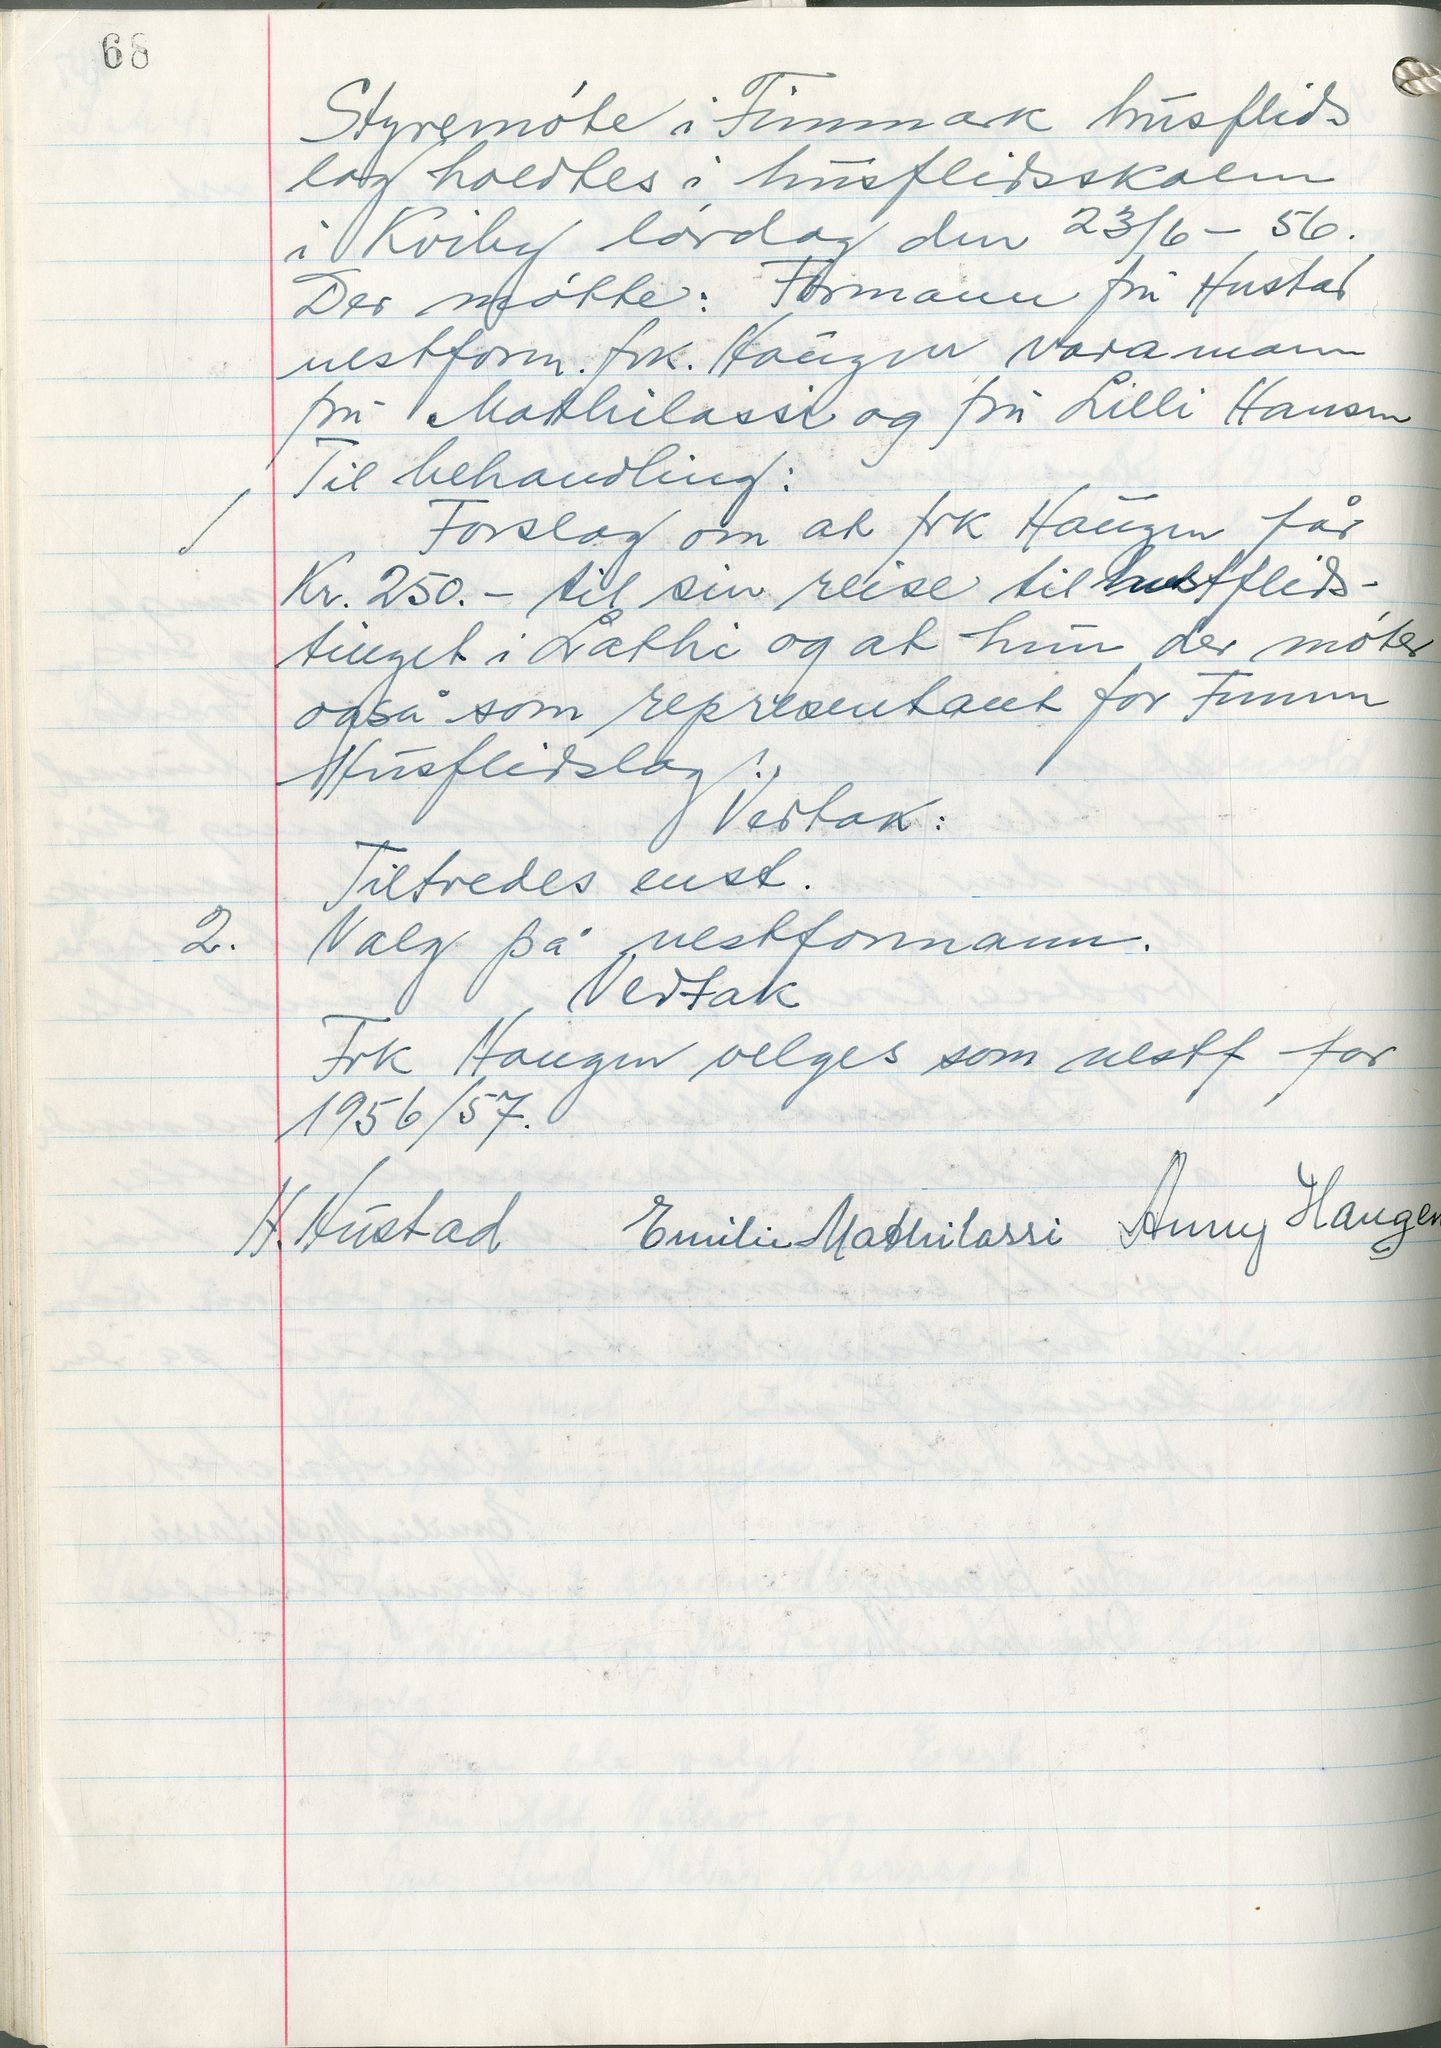 68
Styremöte i Finnmark husflids
lag holdtes i husflidsskolen
i Kviby lördag den 23/6 - 56.
Der mötte: Formann fru Hustad
nestform. frk. Haugen varamann
fru Mathilassi og fru Lilli Hansen
Til behandling:
1 Forslag om at frk Haugen får
Kr. 250.- til sin reise til husflids-
tinget i Lathi og at hun der möter
også som representant for Finnm
Husflidslag.
Vedtak:
Tiltredes enst.
2. Valg på nestformann.
Vedtak
Frk Haugen velges som nestf for
1956/57.
H. Hustad Emilie Mathilassi Anny Haugen